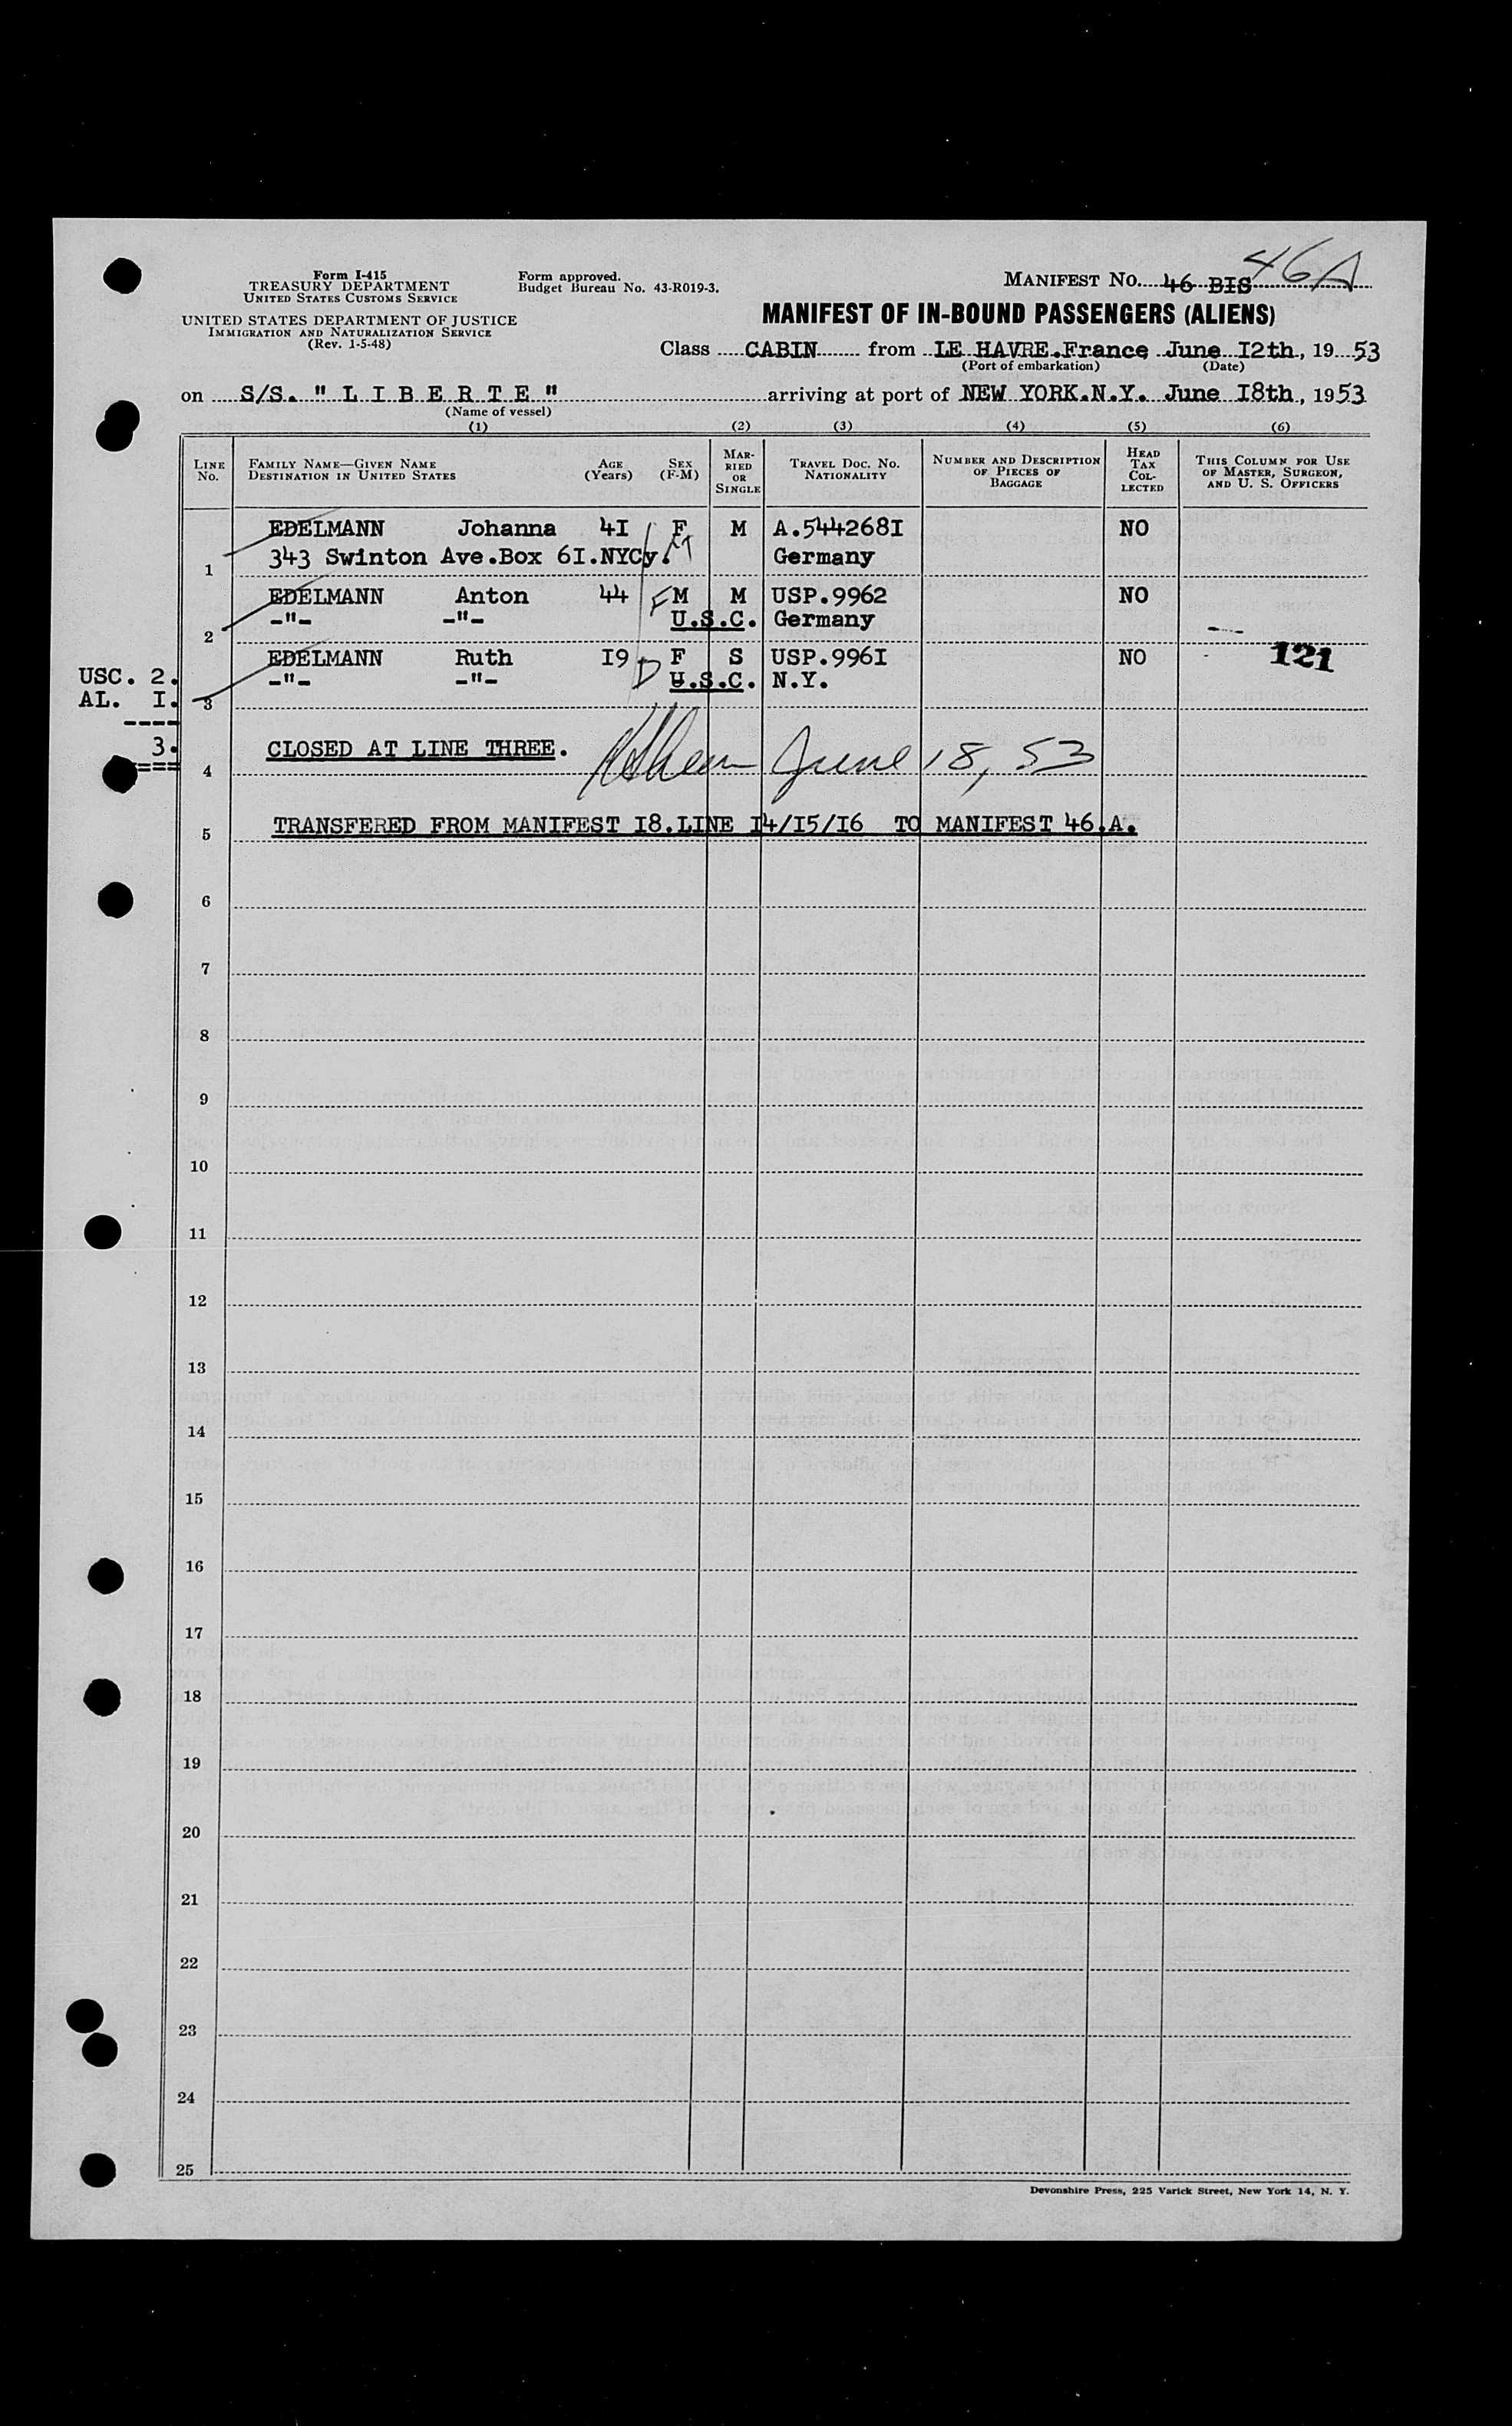 46A
Form I-415
TREASURY DEPARTMENT
UNITED STATES CUSTOMS SERVICE
UNITED STATES DEPARTMENT OF JUSTICE
IMMIGRATION AND NATURALIZATION SERVICE
(Rev. 1-5-48)
Form approved.
Budget Bureau No. 43-R019-3.
MANIFEST NO. 46 BIS
MANIFEST OF IN-BOUND PASSENGERS (ALIENS)
Class CABIN from LE HAVRE.France June I2th, 1953
(Port of embarkation) (Date)
on S/S. " L I B E R T E " arriving at port of NEW YORK.N.Y. June I8th, 1953
(Name of vessel)
(1) (2) (3) (4) (5) (6)
LINE NO. FAMILY NAME—GIVEN NAME DESTINATION IN UNITED STATES AGE (Years) SEX (F-M) MARRIED OR SINGLE TRAVEL DOC. NO. NATIONALITY NUMBER AND DESCRIPTION OF PIECES OF BAGGAGE HEAD TAX COLLECTED THIS COLUMN FOR USE OF MASTER, SURGEON, AND U. S. OFFICERS
EDELMANN Johanna 4I F M A.544268I NO
1 343 Swinton Ave.Box 6I.NYCy. M Germany
EDELMANN Anton 44 F M M USP.9962 NO
2 -"- -"- U.S.C. Germany
EDELMANN Ruth I9 D F S USP.996I NO - 121
3 -"- -"- U.S.C. N.Y.
USC. 2.
AL. I.
----
3.
====
4 CLOSED AT LINE THREE. June 18, 53
5 TRANSFERED FROM MANIFEST I8.LINE I4/I5/I6 TO MANIFEST 46.A.
6
7
8
9
10
11
12
13
14
15
16
17
18
19
20
21
22
23
24
25
Devonshire Press, 225 Varick Street, New York 14, N. Y.